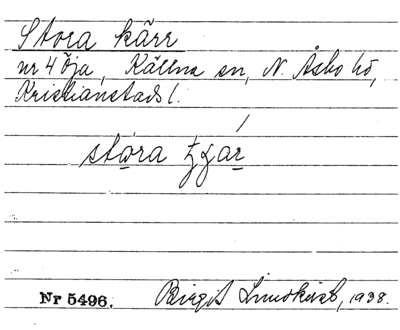 Stora kärr
nr 4 Öja, Källna sn, N. Åsbo hd,
Kristianstads l.
stora
Nr 5496. Birgit Lindkvist, 1938.